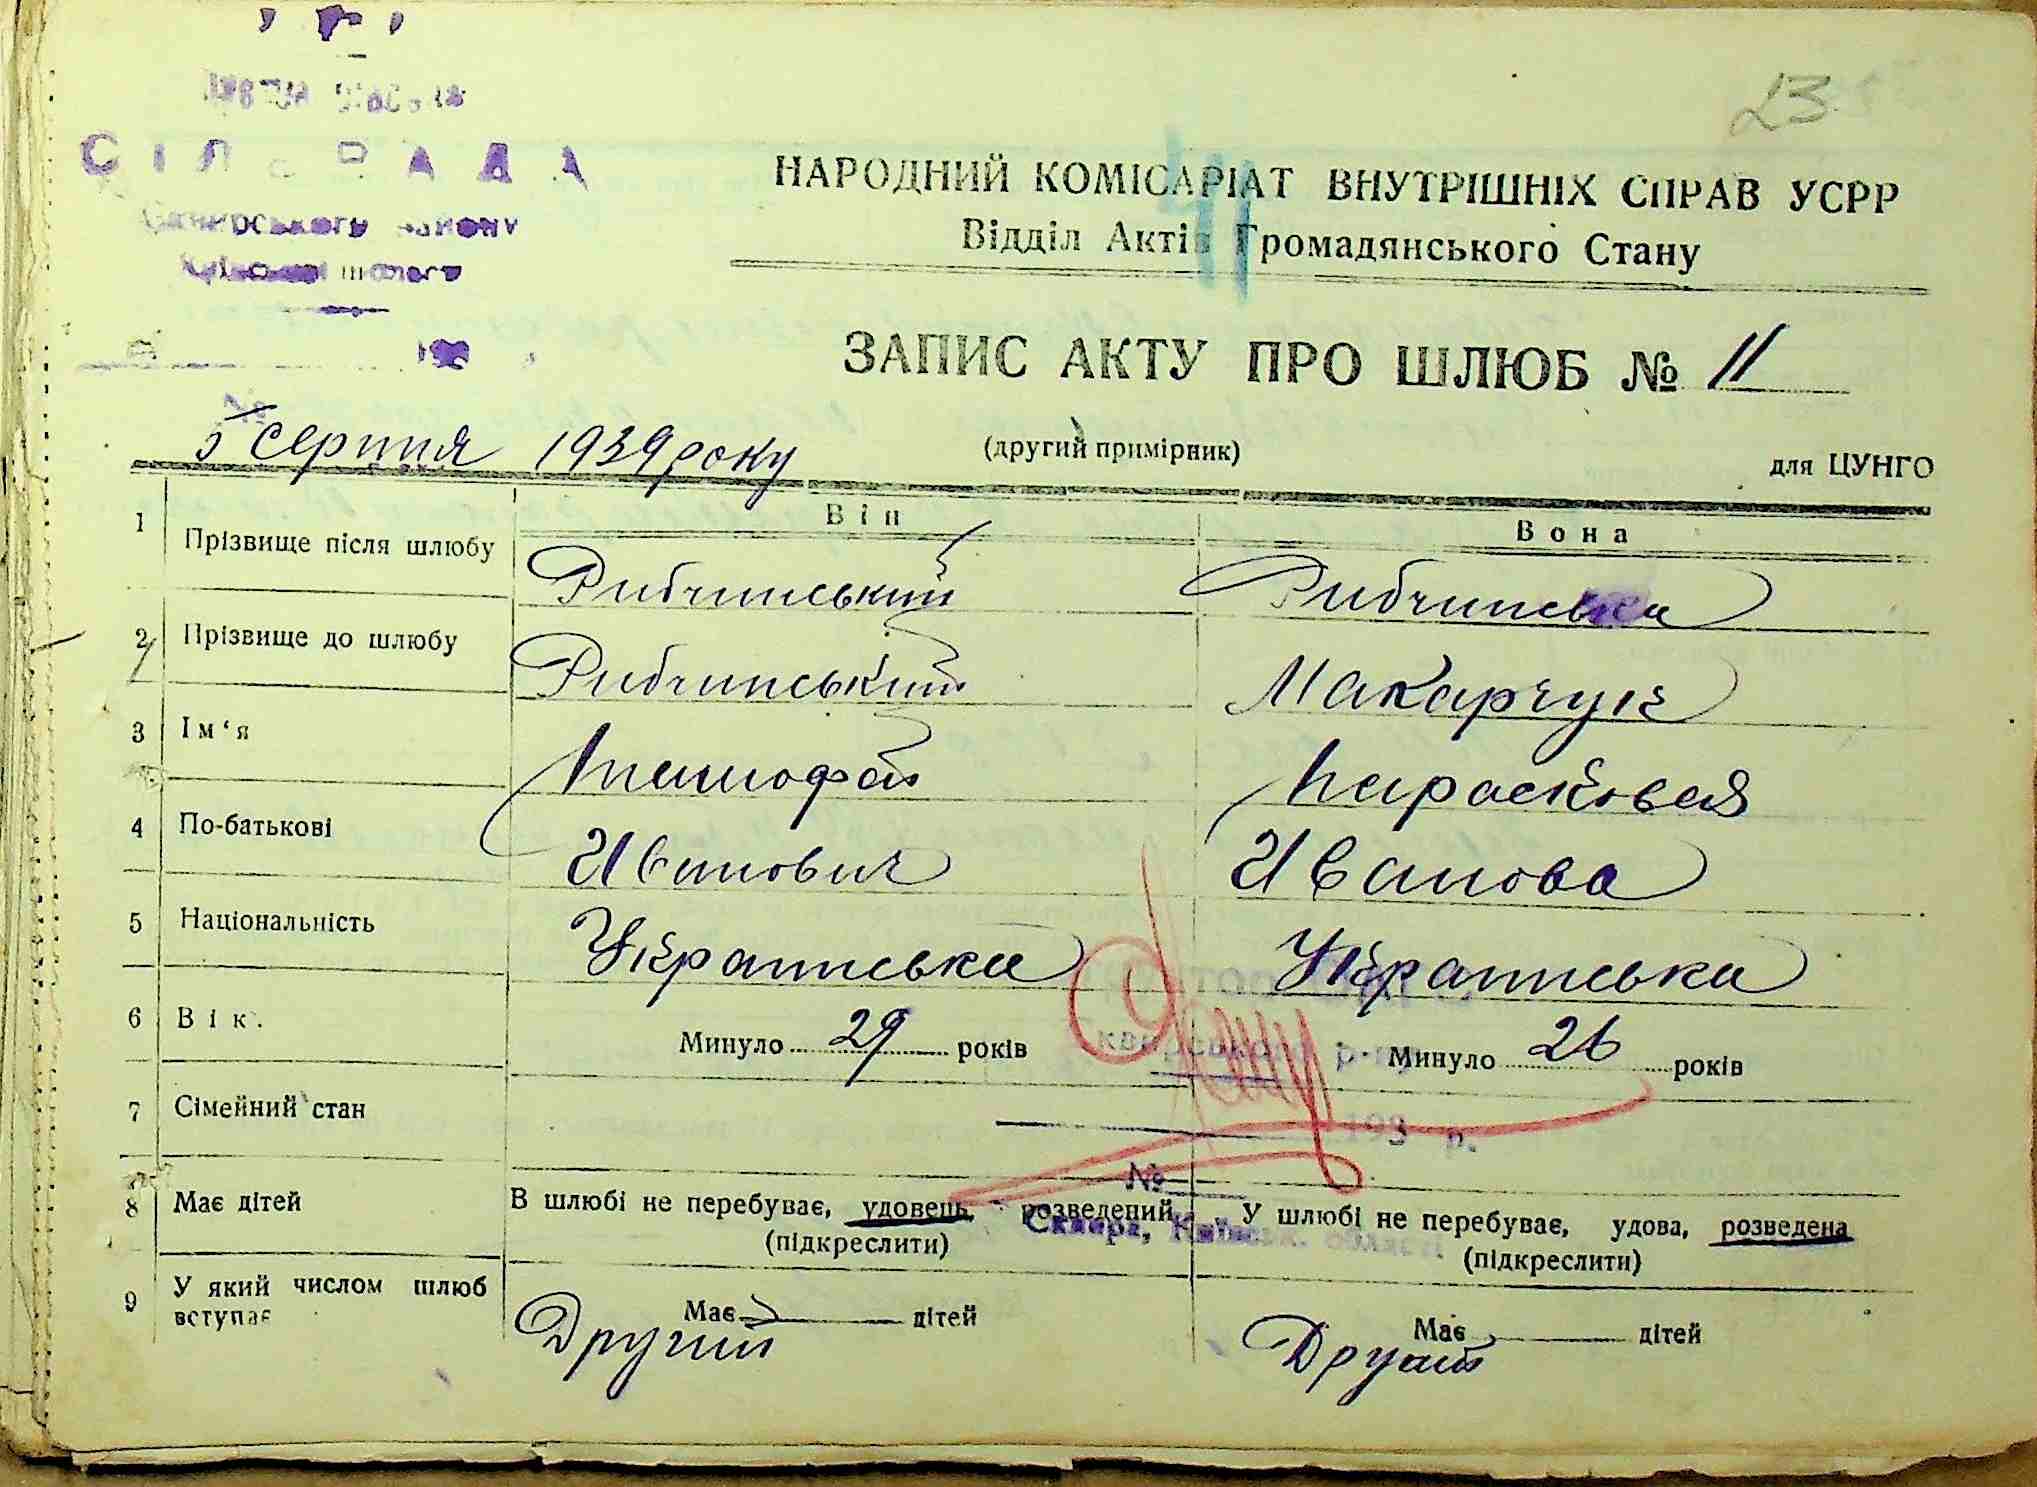 23
СІЛЬРАДА
НАРОДНИЙ КОМІСАРІАТ ВНУТРІШНІХ СПРАВ УСРР
41
Відділ Актів Громадянського Стану
ЗАПИС АКТУ ПРО ШЛЮБ № 11
№
5 серпня 1939 року
(другий примірник)
для ЦУНГО
Він
Вона
1 Прізвище після шлюбу Рибчинський Рибчинська
2 Прізвище до шлюбу Рибчинський Макарчук
3 Ім'я Тимофей Парасковея
4 По-батькові Иванович Иванова
5 Національність Українська Українська
6 Вік. Минуло 29 років Минуло 26 років
р-ну
7 Сімейний стан
193 р.
№
8 Має дітей В шлюбі не перебуває, удовець, розведений У шлюбі не перебуває, удова, розведена
Сквира, Київськ. області
(підкреслити) (підкреслити)
9 У який числом шлюб вступає Має дітей Має дітей
Другий Другий